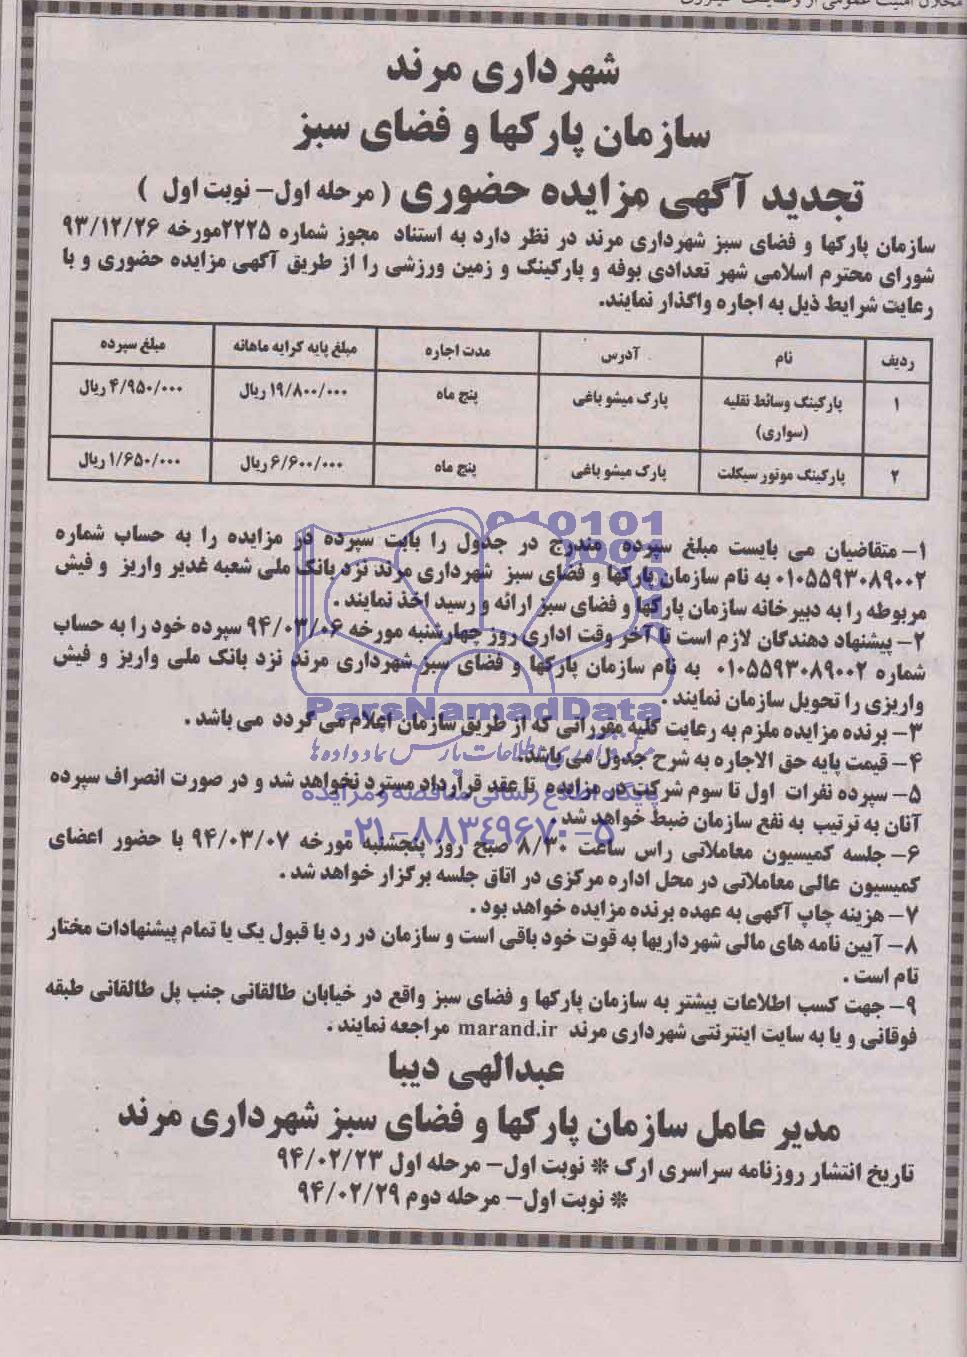 شهرداری مرند
سازمان پارکها و فضای سبز
تجدید آگهی مزایده حضوری ( مرحله اول- نوبت اول )
سازمان پارکها و فضای سبز شهرداری مرند در نظر دارد به استناد مجوز شماره ۲۲۲۵مورخه ۹۳/۱۲/۲۶
شورای محترم اسلامی شهر تعدادی بوفه و پارکینگ و زمین ورزشی را از طریق آگهی مزایده حضوری و با
رعایت شرایط ذیل به اجاره واگذار نمایند.
ردیف نام آدرس مدت اجاره مبلغ پایه کرایه ماهانه مبلغ سپرده
۱ پارکینگ وسائط نقلیه پارک میشو باغی پنج ماه ۱۹/۸۰۰/۰۰۰ ریال ۴/۹۵۰/۰۰۰ ریال
(سواری)
۲ پارکینگ موتور سیکلت پارک میشو باغی پنج ماه ۶/۶۰۰/۰۰۰ ریال ۱/۶۵۰/۰۰۰ ریال
۱- متقاضیان می بایست مبلغ سپرده مندرج در جدول را بابت سپرده در مزایده را به حساب شماره
۰۱۰۵۵۹۳۰۸۹۰۰۲ به نام سازمان پارکها و فضای سبز شهرداری مرند نزد بانک ملی شعبه غدیر واریز و فیش
مربوطه را به دبیرخانه سازمان پارکها و فضای سبز ارائه و رسید اخذ نمایند .
۲- پیشنهاد دهندگان لازم است تا آخر وقت اداری روز چهارشنبه مورخه ۹۴/۰۳/۰۶ سپرده خود را به حساب
شماره ۰۱۰۵۵۹۳۰۸۹۰۰۲ به نام سازمان پارکها و فضای سبز شهرداری مرند نزد بانک ملی واریز و فیش
واریزی را تحویل سازمان نمایند .
ParsNamadData
۳- برنده مزایده ملزم به رعایت کلیه مقرراتی که از طریق سازمان اعلام می گردد می باشد .
مرکز فرآوری اطلاعات پارس نماد داده ها
۴- قیمت پایه حق الاجاره به شرح جدول می باشد.
۵- سپرده نفرات اول تا سوم شرکت در مزایده تا عقد قرارداد مسترد نخواهد شد و در صورت انصراف سپرده
پایگاه اطلاع رسانی مناقصه و مزایده
آنان به ترتیب به نفع سازمان ضبط خواهد شد .
۰۲۱-۸۸۳۴۹۶۷۰-۵
۶- جلسه کمیسیون معاملاتی راس ساعت ۸/۳۰ صبح روز پنجشنبه مورخه ۹۴/۰۳/۰۷ با حضور اعضای
کمیسیون عالی معاملاتی در محل اداره مرکزی در اتاق جلسه برگزار خواهد شد .
۷- هزینه چاپ آگهی به عهده برنده مزایده خواهد بود .
۸- آیین نامه های مالی شهرداریها به قوت خود باقی است و سازمان در رد یا قبول یک یا تمام پیشنهادات مختار
تام است .
۹- جهت کسب اطلاعات بیشتر به سازمان پارکها و فضای سبز واقع در خیابان طالقانی جنب پل طالقانی طبقه
فوقانی و یا به سایت اینترنتی شهرداری مرند marand.ir مراجعه نمایند .
عبدالهی دیبا
مدیر عامل سازمان پارکها و فضای سبز شهرداری مرند
تاریخ انتشار روزنامه سراسری ارک * نوبت اول- مرحله اول ۹۴/۰۲/۲۳
* نوبت اول- مرحله دوم ۹۴/۰۲/۲۹